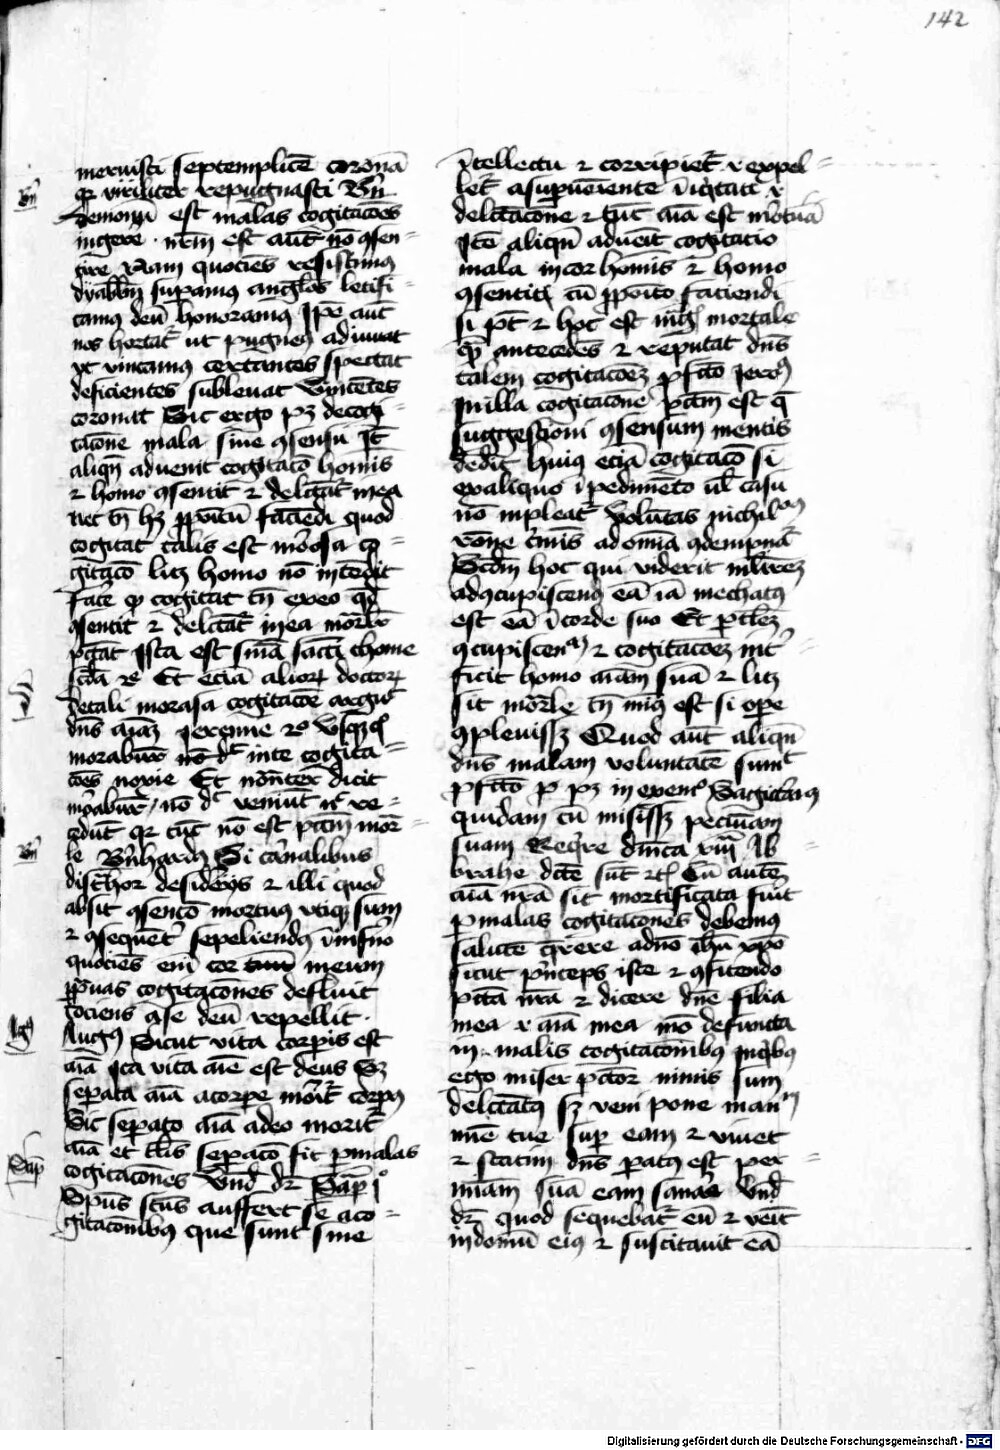 142
meruisti septemplicē coronā
qr viriliter repugnasti Bn̄
demonū est malas cogitacōes
ingere · nr̄m est aut̄ nō ɔsen-
tire Nam quociēs resistimꝰ
dyabolū supamꝰ angl̄os letifi-
camus deū honoramꝰ Ip̄e aut̄
nos hortat̄ ut pugnemꝰ adiuuat
vt vincamus certantes spectat
deficientes subleuat Vincētes
coronat Sic ergo pꝫ de cogi-
tacōne mala sine ɔsensu It̄
aliqn̄ aduenit cogitacō homīs
⁊ homo ɔsentit ⁊ delc̄tat̄ in ea
nec tn̄ hꝫ ꝓpoītū faciēdi quod
cogitat talis est mōrosa co-
gitacō licꝫ homo nō intēdit
face qd̄ cogitat tn̄ ex eo qd̄
ɔsentit ⁊ delc̄tat̄ in ea mōrtr̄
pc̄cat Ista est sn̄ia sancti thome
scd̄a 2e Et eciā alioꝝ doctoꝝ
De tali morosa cogitacōe arguit
dn̄s aīaꝫ Jeremie
morabunt̄ in te cogita-
cōes noxie Et nōnt̄er dicit
morabunt̄ / nō dc̄ veniūt ⁊ re-
cedūt qr tūc nō est pc̄cm̄ mōr-
le Bn̄hardꝰ Si carnalibus
distrahor desiderijs ⁊ illi quod
absit ɔsencō mortuꝰ vtiqꝫ sum
⁊ ɔsequent̄ sepeliendꝰ in inferno
quociēs enī cor meum
ꝑ prauas cogitacones defluit
tociens a se deū repellit ·
Augꝰ Sicut vita corpis est
aīa Ita vita aīe est deus Sꝫ
sepata aīa a corpe morit̄ corpꝰ
Sic sepato aīa a deo morit̄
aīa et hꝰ sepacō fit ꝑ malas
cogitacōnes Vnd̄ dr̄ Sap̄ iͦ
Spūs scūs auffert se a co-
gitacōnibꝰ que sunt sine
ītellectu ⁊ corripiet̄ ⁊ expel-
let̄ a supueniente īiqitate ⁊
delc̄tacōne ⁊ tūc aīa est mōrtua
Itē aliqn̄ aduēit cogitatio
mala in cor homīs ⁊ homo
ɔsentit cū ꝓpoīto faciendi
si pōt ⁊ hoc est magꝭ mortale
qm̄ antecedēs ⁊ reputat dn̄s
talem cogitacōeꝫ ꝓ fcō Jeroꝰ
In illa cogitacōne pc̄cm̄ est q̄
suggestioni ɔsensum mentis
dedit huiꝰ eciā cogitacō si
ex aliquo īpedimēto ul̄ casu
nō impleat̄ Volūtas nichilomꝰ
rōne cīmīs ad omīa ɔdempnat̄
Scdm̄ hoc qui viderit mulierē
ad ɔcupiscendꝰ eā iā mechatꝰ
est eā ī corde suo Et ꝑ taleꝫ
ɔcupiscenꝰ ⁊ cogitacōeꝫ int̄-
ficit homo aīam suā ⁊ licꝫ
sit mōrle tn̄ minꝰ est si ope
ɔpleuissꝫ Quod aut̄ aliqn̄
dn̄s malam voluntatē sumit
ꝑ fcō ꝑ pꝫ in exemꝰ Sagittariꝰ
quidam cū misissꝫ pecuniam
suam Reqre dn̄ica xiiī Ab
brahe dcē sūt ⁊c Cū autē
aīa nr̄a sic mortificata fuit
ꝑ malas cogitacōnes debemꝰ
salutē qrere a dn̄o ihū xpō
sicut pⁱnceps iste ⁊ ɔfitendo
pc̄cā nr̄a ⁊ dicere dn̄e filia
mea ⁊ aīa mea mō defuncta
in malis cogitacōnibus In qbꝰ
ego miser pc̄cor nimis sum
delc̄tatꝰ sꝫ veni pone manū
mīe tue sup eam ⁊ viuet
⁊ statim dn̄s paratꝰ est per
mīam suā eam sanare Vnd̄
dr̄ quod sequebat̄ eū ⁊ venit
in domū eiꝰ ⁊ suscitauit eā
Digitalisierung gefördert durch die Deutsche Forschungsgemeinschaft - DFG